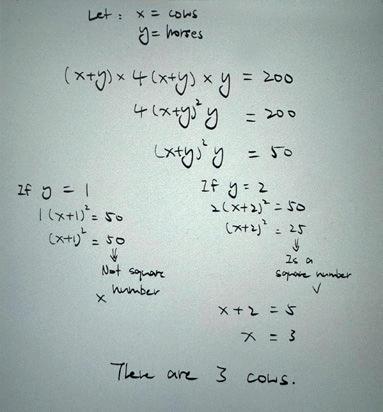 Let : x = cows
y = horses
(x+y) × 4(x+y) × y = 200
4(x+y)² y = 200
(x+y)² y = 50
If y = 1
1(x+1)² = 50
(x+1)² = 50
⇓
Not square
× number
If y = 2
2(x+2)² = 50
(x+2)² = 25
⇓
Is a
square number
✓
x + 2 = 5
x = 3
There are 3 cows.